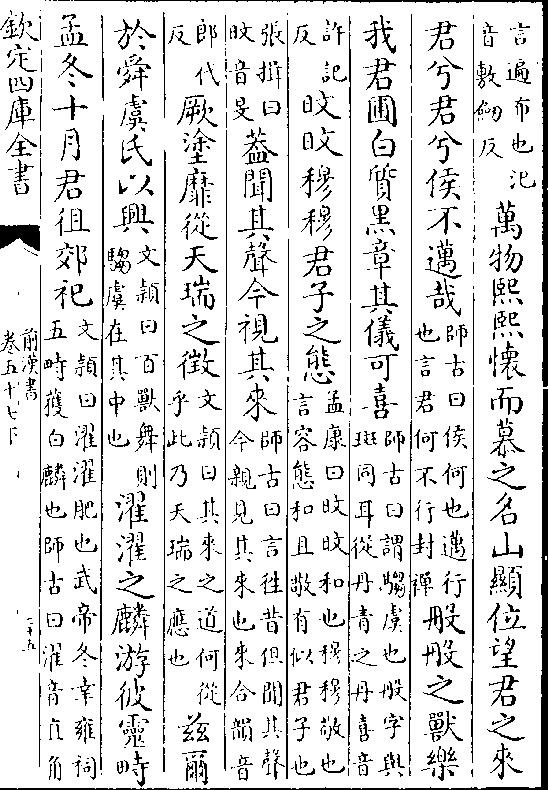 言遍布也氾音敷劒反萬物熙熙懷而慕之名山顯位望君之來
君兮君兮侯不邁哉師古曰侯何也邁行也言君何不行封禪般般之獸樂
我君圃白質黑章其儀可喜師古曰謂騶虞也般字與斑同耳從丹青之丹喜音
許記反旼旼穆穆君子之態孟康曰旼旼和也穆穆敬也言容態和且敬有似君子也
張揖曰旼音旻蓋聞其聲今視其來師古曰言徃昔但聞其聲今親見其來也來合韻音
郎代反厥塗靡從天瑞之徵文頴曰其來之道何從乎此乃天瑞之應也兹爾
於舜虞氏以興文頴曰百獸舞則騶虞在其中也濯濯之麟游彼靈畤
孟冬十月君徂郊祀文頴曰濯濯肥也武帝冬幸雍祠五畤獲白麟也師古曰濯音直角
欽定四庫全書
前漢書
卷五十七下
二十五